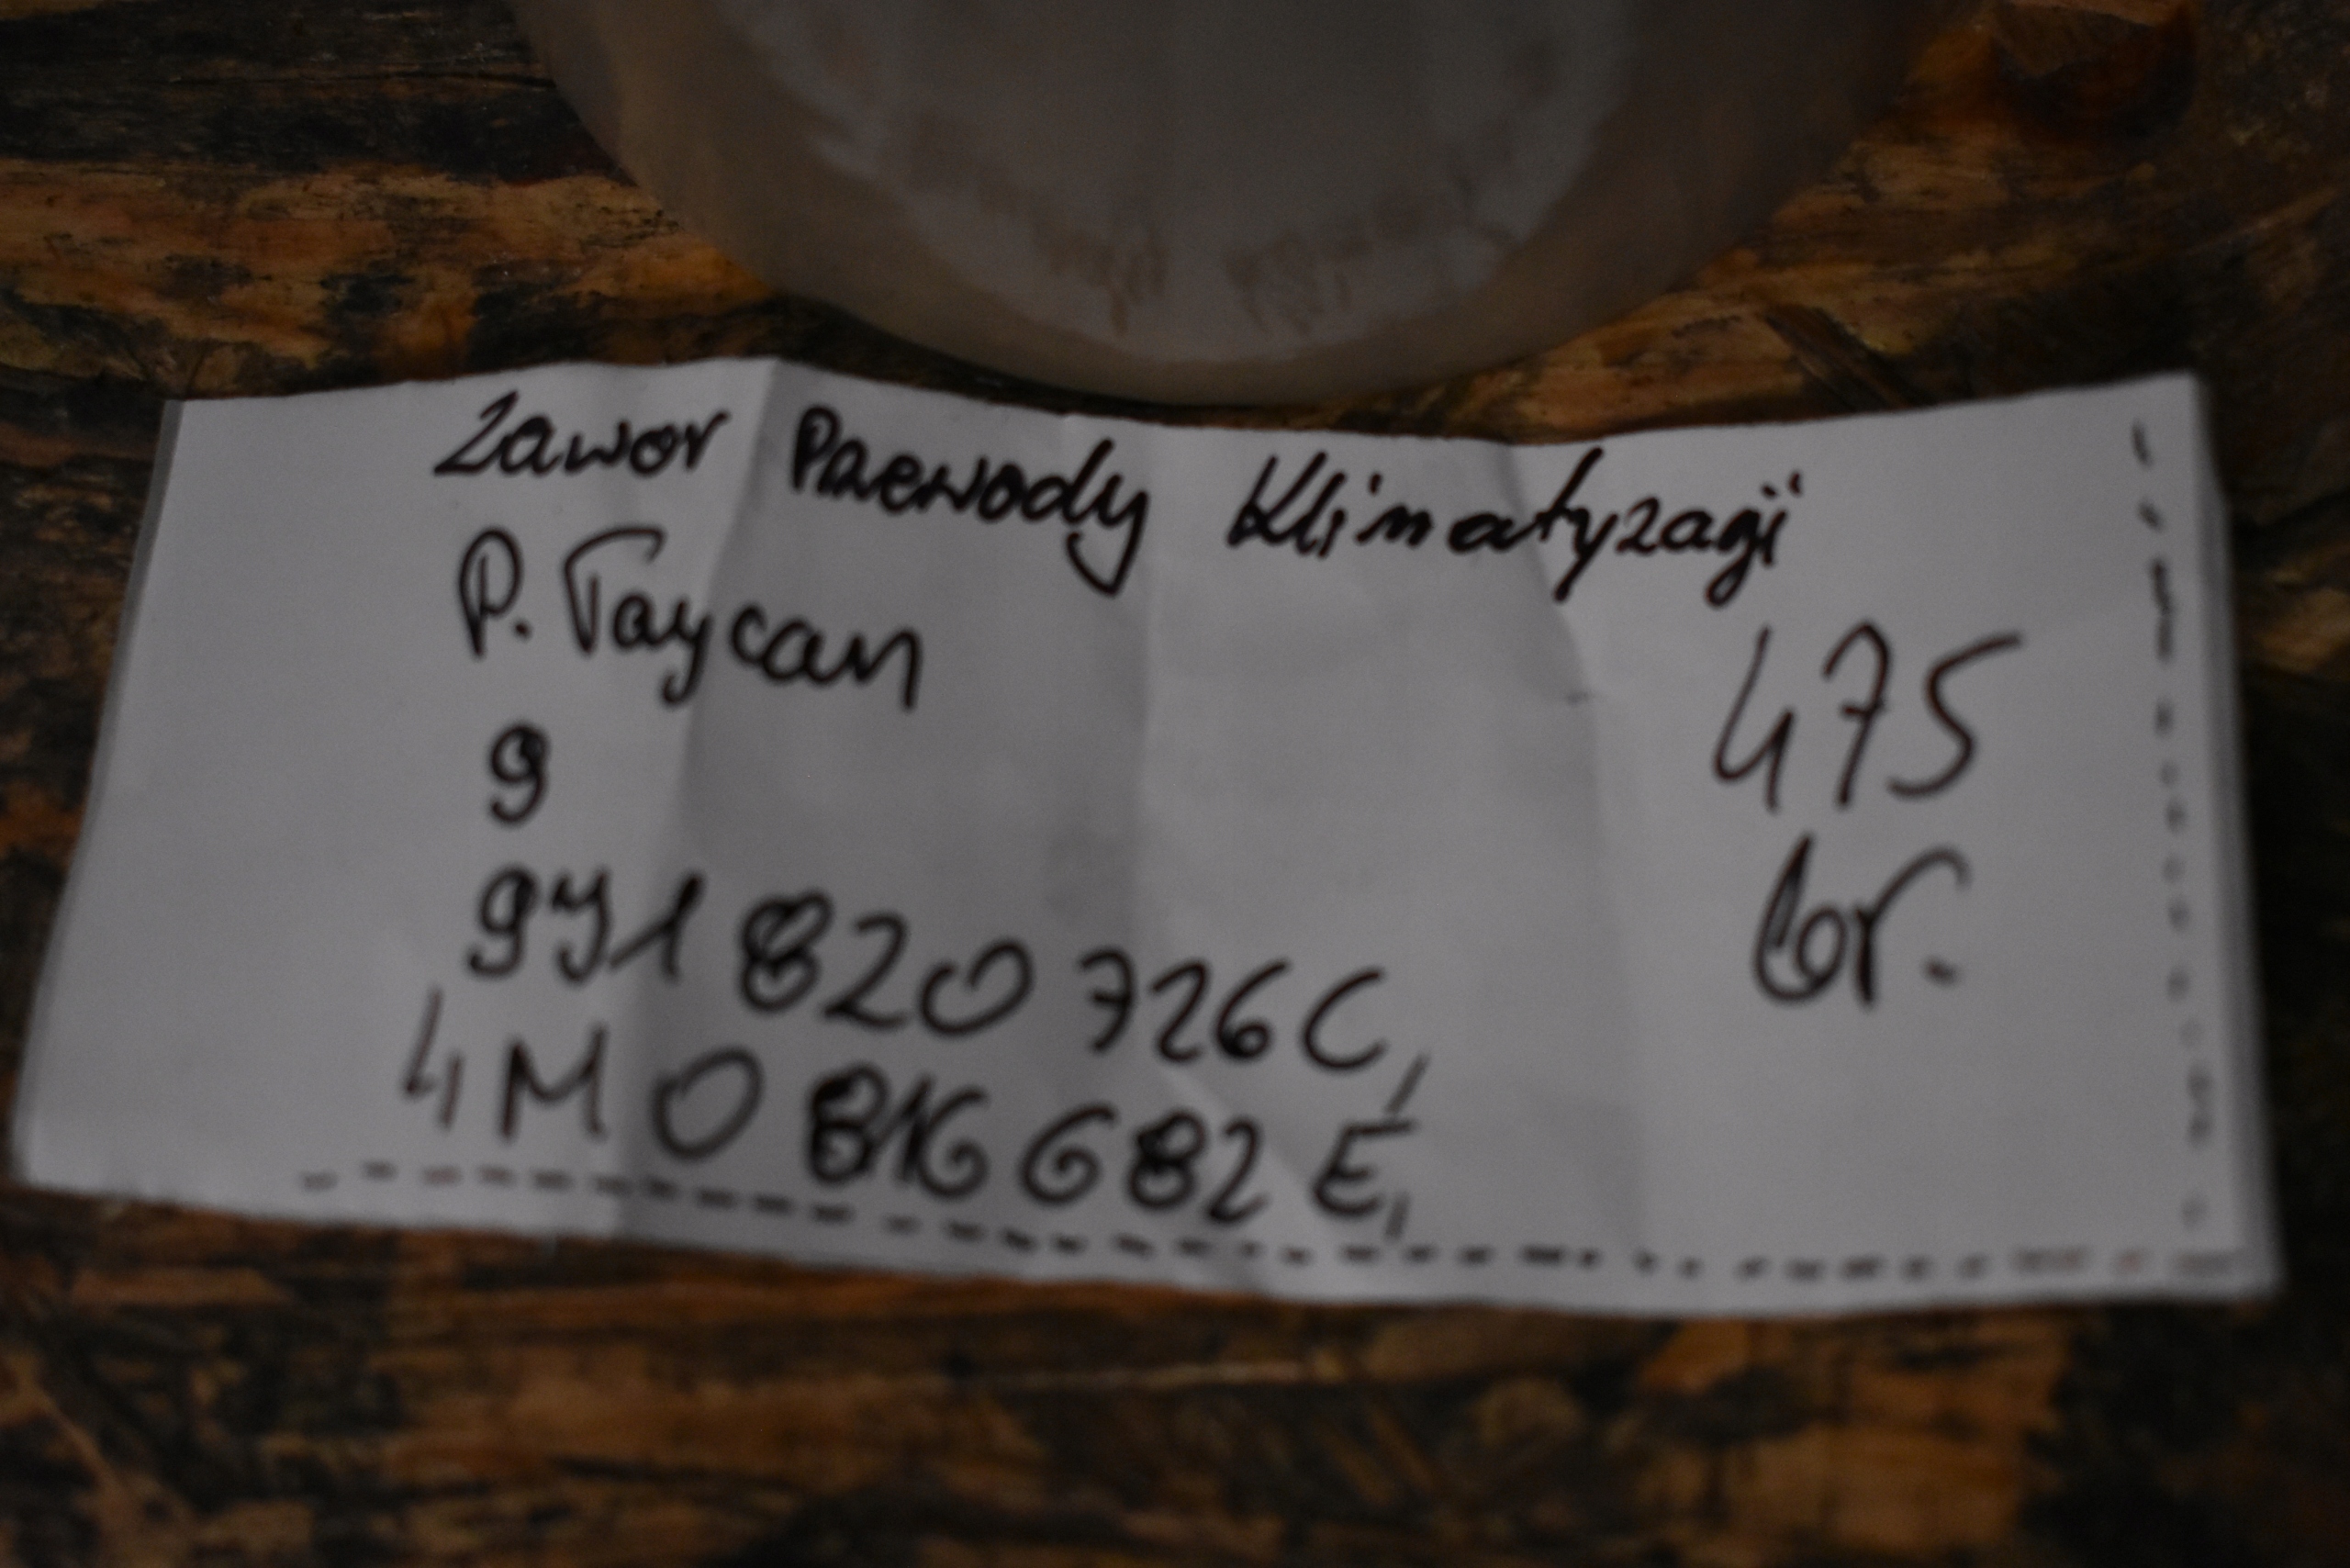 Zawor Przewody Klimatyzacji
P. Taycan
475
9
br.
9J1 820 726C,
4M0 816 682 E,